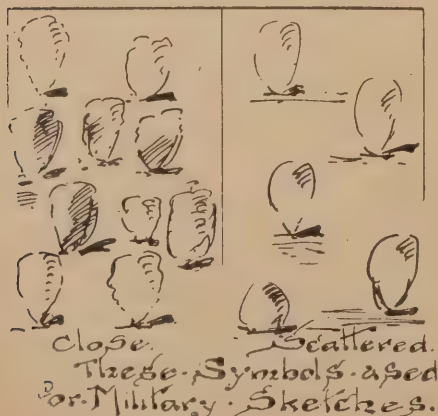 Close. Scattered.
These · Symbols · used
for · Military · Sketches.